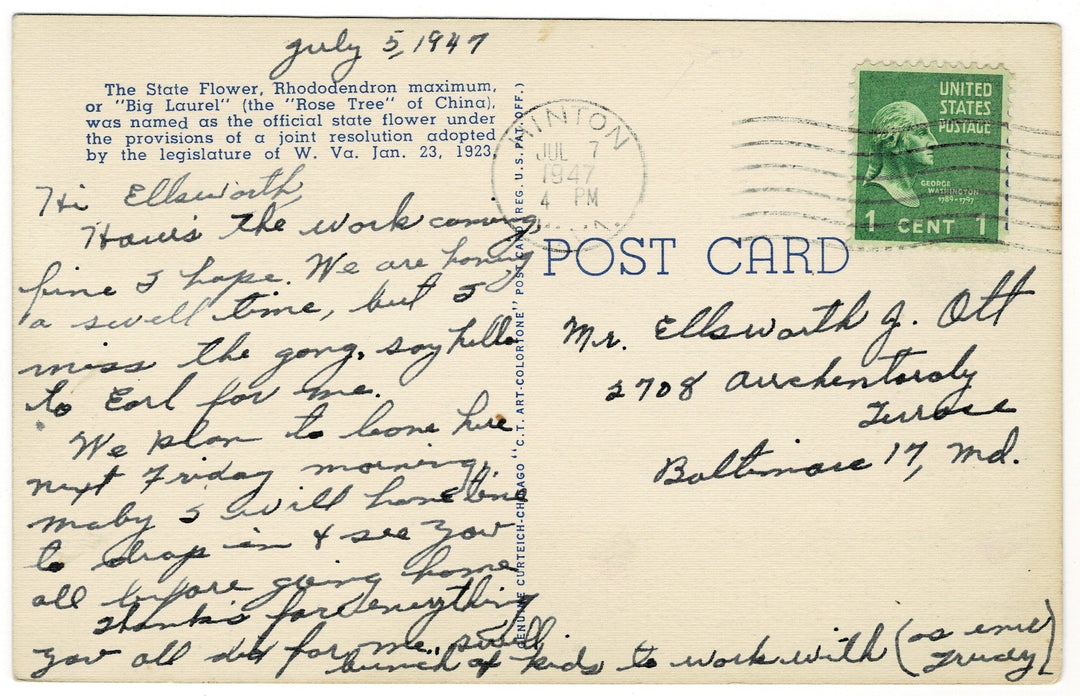 July 5, 1947
The State Flower, Rhododendron maximum,
or "Big Laurel" (the "Rose Tree" of China),
was named as the official state flower under
the provisions of a joint resolution adopted
by the legislature of W. Va. Jan. 23, 1923.
Hi Ellsworth,
How's the work coming,
fine I hope. We are having
a swell time, but I
miss the gang, say hello
to Earl for me.
We plan to leave here
next Friday morning,
maby I will have time
to drop in & see you
all before going home
Thanks for everything
you all did for me., swell
bunch of kids to work with (as ever
Trudy)
GENUINE CURTEICH-CHICAGO "C.T. ART-COLORTONE" POST CARD (REG. U.S. PAT. OFF.)
HINTON
JUL 7
1947
4 PM
UNITED
STATES
POSTAGE
GEORGE
WASHINGTON
1789-1797
1 CENT 1
POST CARD
Mr. Ellsworth J. Ott
2708 Auchentoroly
Terrace
Baltimore 17, Md.